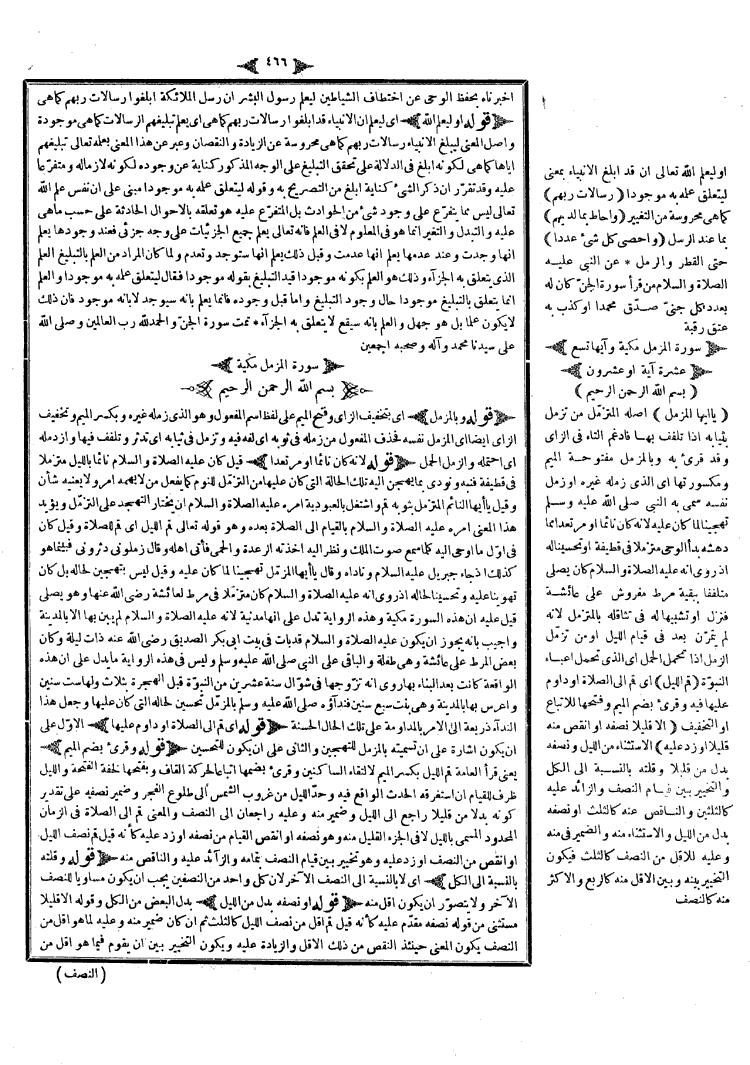 ٤٦٦
اخبرناه بحفظ الوحى عن اختطاف الشياطين ليعلم رسول البشر ان رسل الملائكة ابلغوا رسالات ربهم كماهى
قوله اوليعلم الله اى ليعلم ان الانبياء قد ابلغوا رسالات ربهم كماهى اى يعلم تبليغهم الرسالات كماهى موجودة
واصل المعنى ليبلغ الانبياء رسالات ربهم كماهى محروسة عن الزيادة والنقصان وعبر عن هذا المعنى بعلمه تعالى تبليغهم
اياها كماهى لكونه ابلغ فى الدلالة على تحقق التبليغ على الوجه المذكور كناية عن وجوده لكونه لازماله ومتفرعا
عليه وقد تقرر ان ذكر الشئ كناية ابلغ من التصريح به وقوله ليتعلق علمه به موجودا مبنى على ان نفس علم الله
تعالى ليس مما يتفرع على وجود شئ من الحوادث بل المتفرع عليه هو تعلقه بالاحوال الحادثة على حسب ماهى
عليه والتبدل والتغير انما هو فى المعلوم لا فى العلم فانه تعالى يعلم جميع الجزئيات على وجه جزئى فعند وجودها يعلم
انها وجدت وعند عدمها يعلم انها عدمت وقبل ذلك يعلم انها ستوجد وتعدم ولما كان المراد من العلم بالتبليغ العلم
الذى يتعلق به الجزاء وذلك هو العلم بكونه موجودا قيد التبليغ بقوله موجودا فقال ليتعلق علمه به موجودا والعلم
انما يتعلق بالتبليغ موجودا حال وجود التبليغ واما قبل وجوده فانما يعلم بانه سيوجد لابانه موجود فان ذلك
لايكون علما بل هو جهل والعلم بانه سيقع لا يتعلق به الجزاء * تمت سورة الجن والحمدلله رب العالمين وصلى الله
على سيدنا محمد وآله وصحبه اجمعين
سورة المزمل مكية
بسم الله الرحمن الرحيم
قوله وبالمزمل اى بتخفيف الزاى وفتح الميم على لفظ اسم المفعول وهو الذى زمله غيره وبكسر الميم وتخفيف
الزاى ايضا اى المزمل نفسه فحذف المفعول من زمله فى ثوبه اى لفه فيه وتزمل فى ثيابه اى تدثر وتلفف فيها وازدمله
اى احتمله والزمل الحمل قوله لانه كان نائما اومرتعدا قيل كان عليه الصلاة والسلام نائما بالليل متزملا
فى قطيفة فنبه ونودى بما يهجن اليه تلك الحالة التى كان عليها من التزمل للنوم كما يفعل من لايهمه امر ولا يعنيه شأن
وقيل ياأيها النائم المتزمل بثوبه قم واشتغل بالعبودية امره عليه الصلاة والسلام ان يختار التهجد على التزمل ويؤيد
هذا المعنى امره عليه الصلاة والسلام بالقيام الى الصلاة بعده وهو قوله تعالى قم الليل اى قم للصلاة وقيل كان
فى اول ما اوحى اليه كلما سمع صوت الملك ونظر اليه اخذته الرعدة والحمى فأتى اهله وقال زملونى دثرونى فبينما هو
كذلك اذجاء جبريل عليه السلام وناداه وقال ياأيها المزمل تهجينا لما كان عليه وقيل ليس بتهجين لحاله بل كان
تهوينا عليه وتحسينا لحاله اذروى انه عليه الصلاة والسلام كان متزملا فى مرط لعائشة رضى الله عنها وهو يصلى
قيل عليه ان هذه السورة مكية وهذه الرواية تدل على انها مدنية لانه عليه الصلاة والسلام لم يبن بها الا بالمدينة
واجيب بانه يجوز ان يكون عليه الصلاة والسلام قدبات فى بيت ابى بكر الصديق رضى الله عنه ذات ليلة وكان
بعض المرط على عائشة وهى طفلة والباقى على النبى صلى الله عليه وسلم وليس فى هذه الرواية مايدل على ان هذه
الواقعة كانت بعد البناء بها روى انه تزوجها فى شوال سنة عشر من النبوة قبل الهجرة بثلاث ولها ست سنين
واعرس بها بالمدينة وهى بنت سبع سنين فنداؤه صلى الله عليه وسلم بالمزمل تحسين لحاله التى كان عليها وجعل هذا
النداء ذريعة الى الامر بالمداومة على تلك الحال الحسنة قوله اى قم الى الصلاة اوداوم عليها الاول على
ان يكون اشارة على ان تسميته بالمزمل للتهجين والثانى على ان يكون للتحسين قوله وقرئ بضم الميم
يعنى قرأ العامة قم الليل بكسر الميم لالتقاء الساكنين وقرئ بضمها اتباعا لحركة القاف وبفتحها لخفة الفتحة والليل
ظرف للقيام ان استغرقه الحدث الواقع فيه وحد الليل من غروب الشمس الى طلوع الفجر وضمير نصفه على تقدير
كونه بدلا من قليلا راجع الى الليل وضمير منه وعليه راجعان الى النصف والمعنى قم الى الصلاة فى الزمان
المحدود المسمى بالليل لا فى الجزء القليل منه وهو نصفه اوانقص القيام من نصفه اوزد عليه كأنه قيل قم نصف الليل
اوانقص من النصف اوزد عليه وهو تخيير بين قيام النصف بتمامه والزائد عليه والناقص منه قوله وقلته
بالنسبة الى الكل اى لا بالنسبة الى النصف الآخر لان كل واحد من النصفين يجب ان يكون مساويا للنصف
الآخر ولا يتصور ان يكون اقل منه قوله او نصفه بدل من الليل بدل البعض من الكل وقوله الا قليلا
مستثنى من قوله نصفه مقدم عليه كأنه قيل قم اقل من نصف الليل كالثلث ثم ان كان ضمير منه وعليه لما هو اقل من
النصف يكون المعنى حينئذ النقص من ذلك الاقل والزيادة عليه ويكون التخيير بين ان يقوم فيما هو اقل من
( النصف )
اوليعلم الله تعالى ان قد ابلغ الانبياء بمعنى
ليتعلق علمه به موجودا ( رسالات ربهم )
كماهى محروسة من التغيير ( واحاط بما لديهم )
بما عند الرسل ( واحصى كل شئ عددا )
حتى القطر والرمل * عن النبى عليه
الصلاة والسلام من قرأ سورة الجن كان له
بعدد كل جنى صدق محمدا اوكذب به
عتق رقبة
سورة المزمل مكية وآيها تسع
عشرة آية اوعشرون
( بسم الله الرحمن الرحيم )
( ياايها المزمل ) اصله المتزمل من تزمل
بثيابه اذا تلفف بها فادغم التاء فى الزاى
وقد قرئ به وبالمزمل مفتوحة الميم
ومكسورتها اى الذى زمله غيره اوزمل
نفسه سمى به النبى صلى الله عليه وسلم
تهجينا لما كان عليه لانه كان نائما اومرتعدا مما
دهشه بدأ الوحى متزملا فى قطيفة اوتحسيناله
اذروى انه عليه الصلاة والسلام كان يصلى
متلففا ببقية مرط مفروش على عائشة
فنزل اوتشبيها له فى تثاقله بالمتزمل لانه
لم يتمرن بعد فى قيام الليل اومن تزمل
الزمل اذا تحمل الحمل اى الذى تحمل اعباء
النبوة ( قم الليل ) اى قم الى الصلاة اوداوم
عليها فيه وقرئ بضم الميم وفتحها للاتباع
اوالتخفيف ( الا قليلا نصفه اوانقص منه
قليلا اوزد عليه ) الاستثناء من الليل ونصفه
بدل من قليلا وقلته بالنسبة الى الكل
والتخيير بين قيام النصف والزائد عليه
كالثلثين والناقص عنه كالثلث اونصفه
بدل من الليل والاستثناء منه والضمير فى منه
وعليه للاقل من النصف كالثلث فيكون
التخيير بينه وبين الاقل منه كالربع والاكثر
منه كالنصف